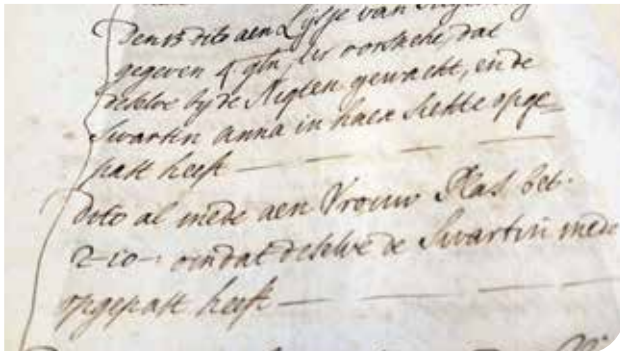 Den 15 dito aen Lijsje van
gegeven 4 gln, ter oorsaeke, dat
deselve bij de Nigten gewaekt, en de
Swartin Anna in haer siekte opge-
past heeft
dito al mede aen Vrouw Plas bet.
2-10-: omdat deselve de Swartin mede
opgepast heeft